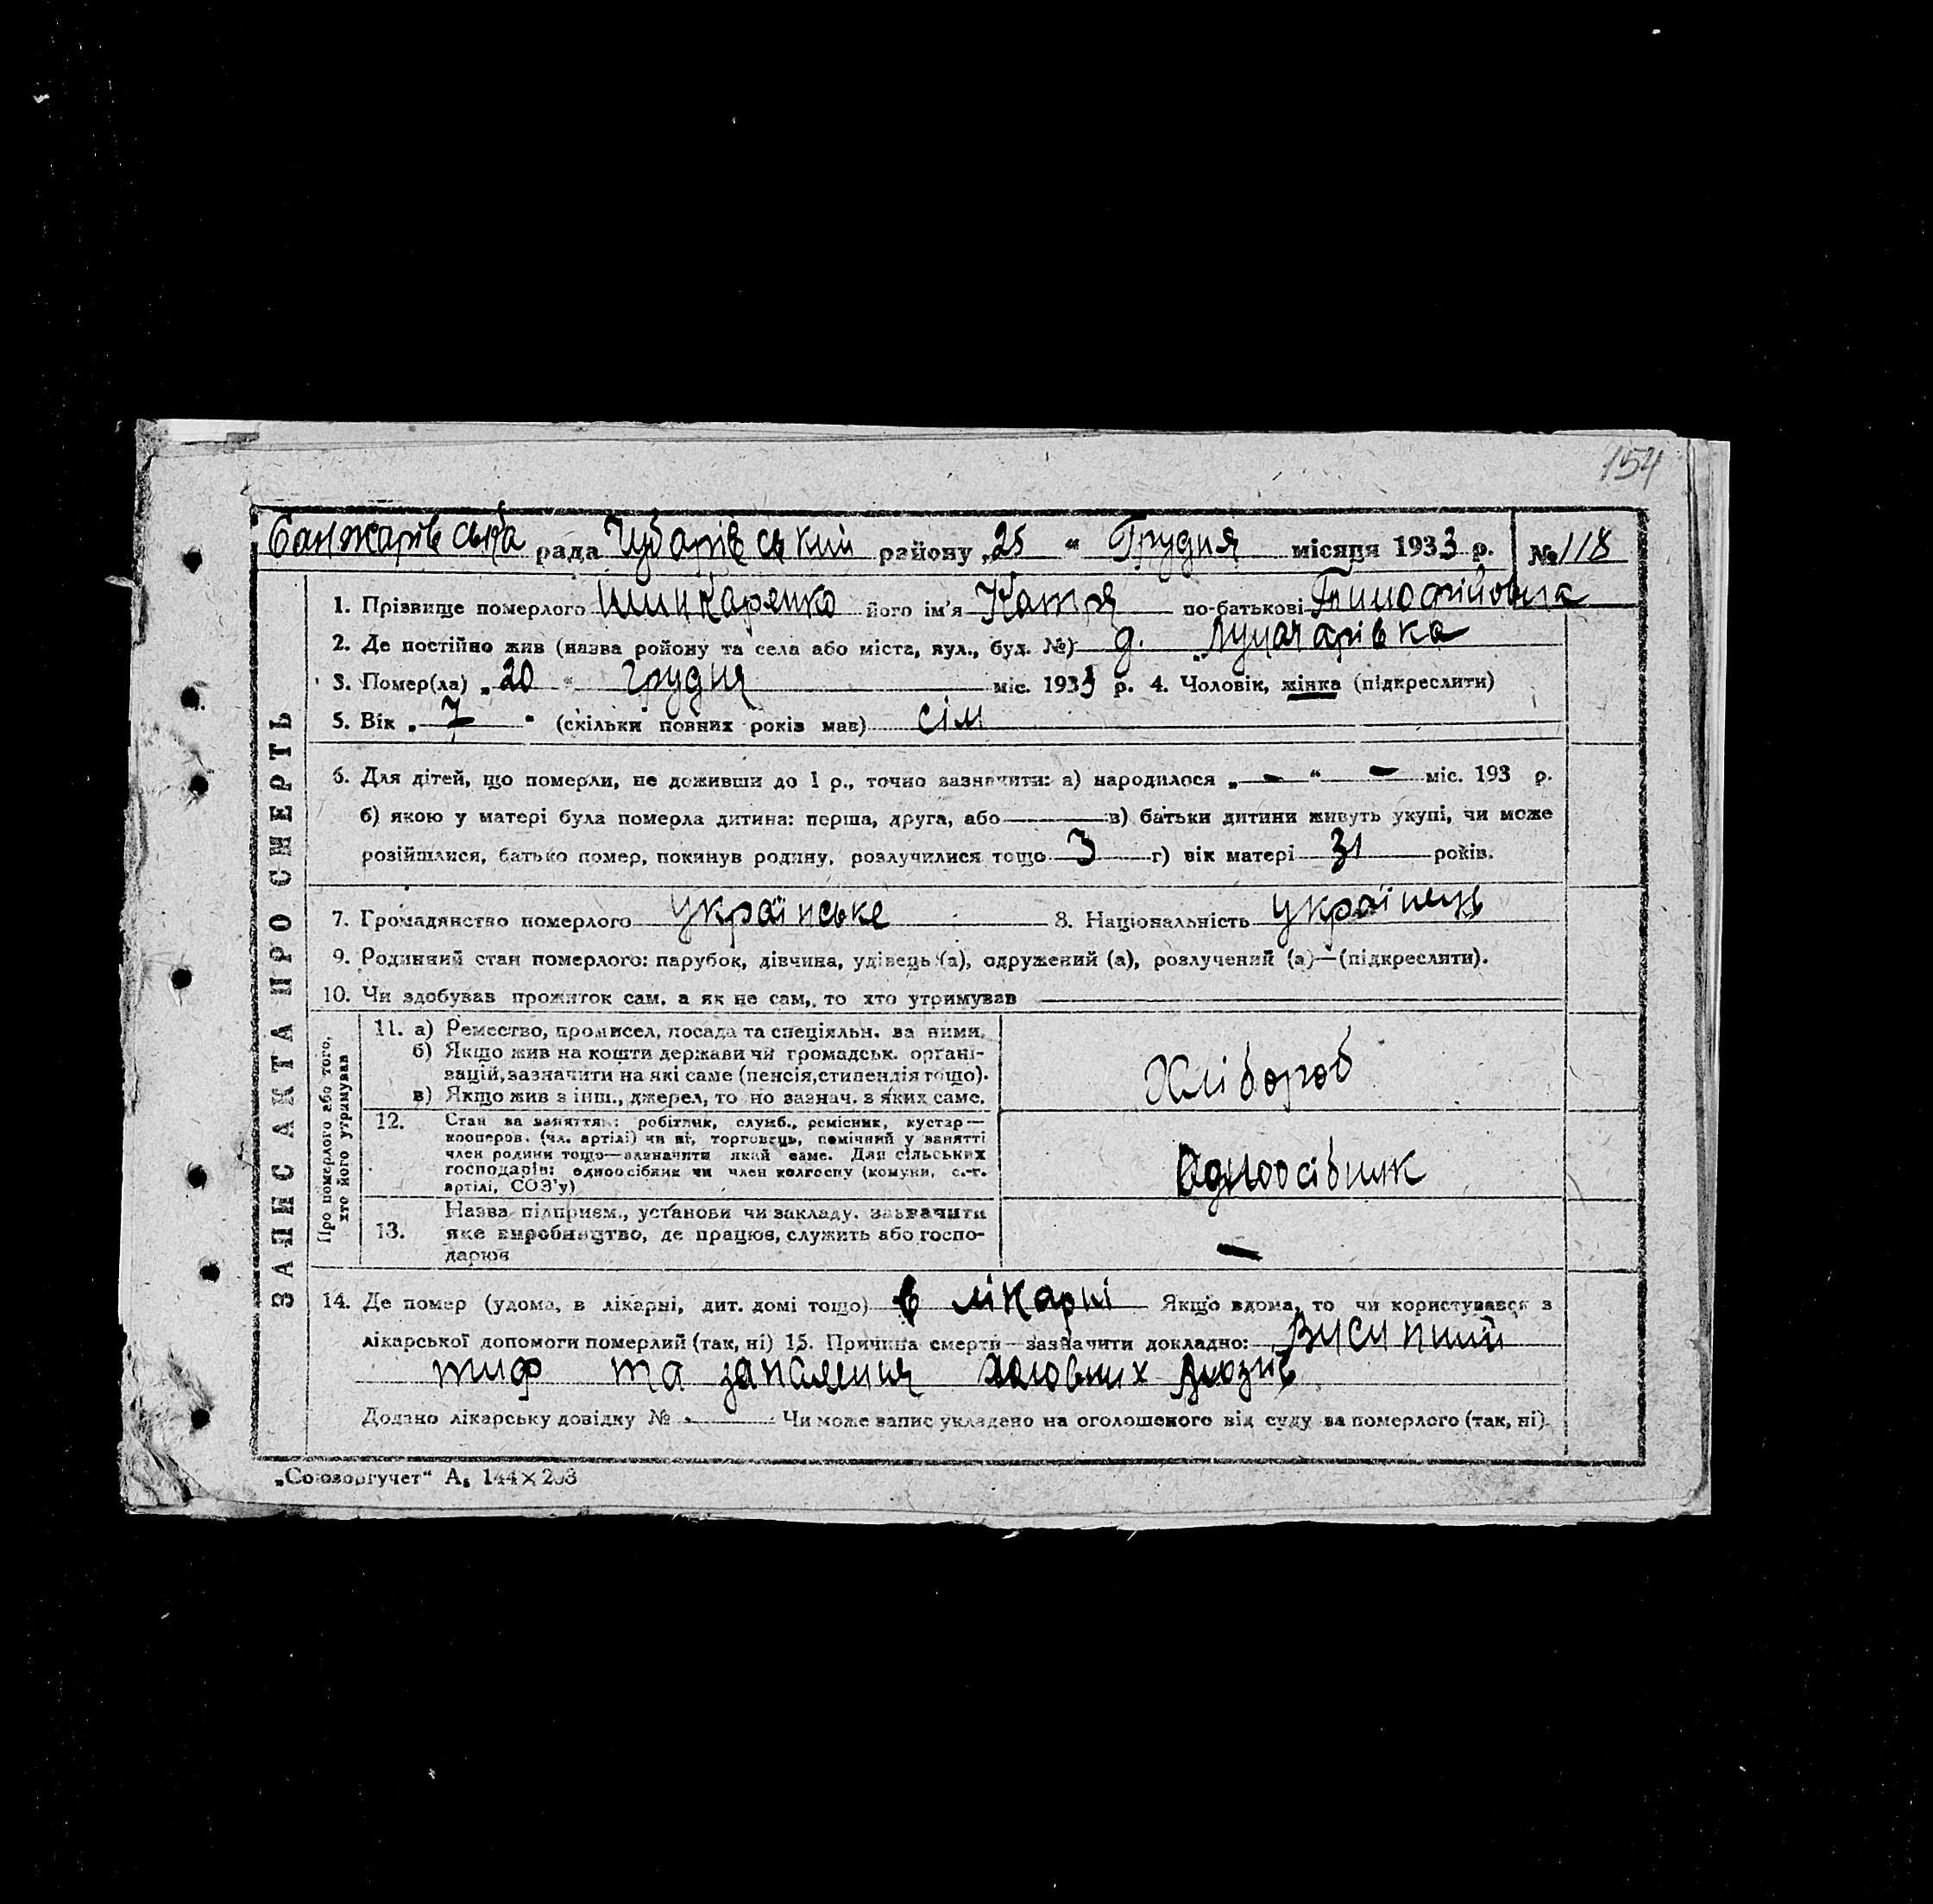 154
Санжарівська рада Чубарівський району „25“ Грудня місяця 1933 р. № 118
ЗАПИС АКТА ПРО СМЕРТЬ
1. Прізвище померлого Шинкаренко його ім'я Катря по-батькові Тимофійовна
2. Де постійно жив (назва ройону та села або міста, вул., буд. №) д. Луначарівка
3. Помер(ла) „20“ грудня міс. 1933 р. 4. Чоловік, жінка (підкреслити)
5. Вік „7“ (скільки повних років мав) сім
6. Для дітей, що померли, не доживши до 1 р., точно зазначити: а) народилося „—“ — міс. 193 р.
б) якою у матері була померла дитина: перша, друга, або в) батьки дитини живуть укупі, чи може
розійшлися, батько помер, покинув родину, розлучилися тощо 3 г) вік матері 31 років.
7. Громадянство померлого українське 8. Національність українець
9. Родинний стан померлого: парубок, дівчина, удівець (а), одружений (а), розлучений (а)—(підкреслити).
10. Чи здобував прожиток сам, а як не сам, то хто утримував
Про померлого або того,
хто його утримував
11. а) Ремество, промисел, посада та спеціяльн. за ними.
б) Якщо жив на кошти держави чи громадськ. органі-
зацій, зазначити на які саме (пенсія, стипендія тощо).
в) Якщо жив з інш., джерел, то но зазнач. з яких саме.
Хлібороб
12. Стан за заняттям: робітник, служб., ремісник, кустар—
кооперов. (чл. артілі) чи ні, торговець, помічний у занятті
член родини тощо—зазначити який саме. Для сільських
господарів: одноосібник чи член колгоспу (комуни, с.-г.
артілі, СОЗ'у)
Одноосібник
13. Назва підприєм., установи чи закладу. зазначити
яке виробництво, де працює, служить або госпо-
дарює
—
14. Де помер (удома, в лікарні, дит. домі тощо) в лікарні Якщо вдома, то чи користувався з
лікарської допомоги померлий (так, ні) 15. Причина смерти—зазначити докладно: Висипний
тиф та запалення головних мозків
Додано лікарську довідку № Чи може запис укладено на оголошеного від суду за померлого (так, ні).
„Союзоргучет“ А₅ 144×203